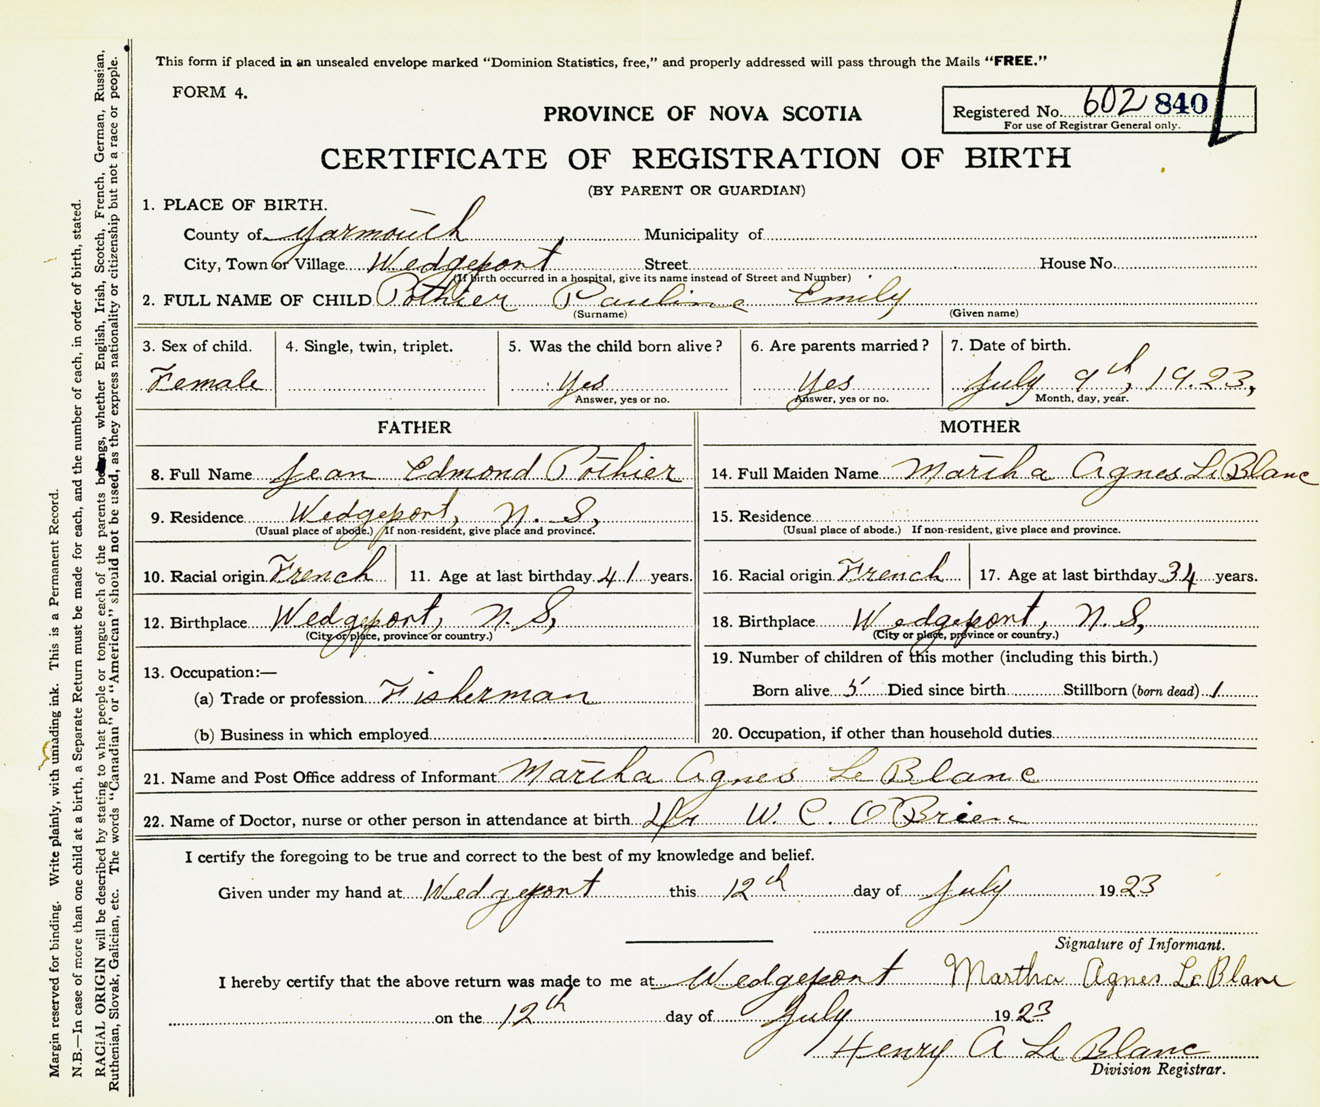 This form if placed in an unsealed envelope marked "Dominion Statistics, free," and properly addressed will pass through the Mails "FREE."
FORM 4.
Registered No. 602 840
For use of Registrar General only.
PROVINCE OF NOVA SCOTIA
CERTIFICATE OF REGISTRATION OF BIRTH
(BY PARENT OR GUARDIAN)
1. PLACE OF BIRTH.
County of Yarmouth Municipality of
City, Town or Village Wedgeport Street House No.
(If birth occurred in a hospital, give its name instead of Street and Number)
2. FULL NAME OF CHILD Pothier Pauline Emily
(Surname) (Given name)
3. Sex of child. 4. Single, twin, triplet. 5. Was the child born alive? 6. Are parents married? 7. Date of birth.
Female Yes Yes July 9th, 1923,
Answer, yes or no. Answer, yes or no. Month, day, year.
FATHER
8. Full Name Jean Edmond Pothier
9. Residence Wedgeport, N. S,
(Usual place of abode.) If non-resident, give place and province.
10. Racial origin French 11. Age at last birthday 41 years.
12. Birthplace Wedgeport, N. S,
(City or place, province or country.)
13. Occupation:—
(a) Trade or profession Fisherman
(b) Business in which employed
MOTHER
14. Full Maiden Name Martha Agnes LeBlanc
15. Residence
(Usual place of abode.) If non-resident, give place and province.
16. Racial origin French 17. Age at last birthday 34 years.
18. Birthplace Wedgeport, N. S,
(City or place, province or country.)
19. Number of children of this mother (including this birth.)
Born alive 5 Died since birth Stillborn (born dead) 1
20. Occupation, if other than household duties
21. Name and Post Office address of Informant Martha Agnes Le Blanc
22. Name of Doctor, nurse or other person in attendance at birth Dr W. C. O'Brien
I certify the foregoing to be true and correct to the best of my knowledge and belief.
Given under my hand at Wedgeport this 12th day of July 1923
Signature of Informant.
I hereby certify that the above return was made to me at Wedgeport Martha Agnes Le Blanc
on the 12th day of July 1923
Henry A Le Blanc
Division Registrar.
Margin reserved for binding. Write plainly, with unfading ink. This is a Permanent Record.
N.B.—In case of more than one child at a birth, a Separate Return must be made for each, and the number of each, in order of birth, stated.
RACIAL ORIGIN will be described by stating to what people or tongue each of the parents belongs, whether English, Irish, Scotch, French, German, Russian,
Ruthenian, Slovak, Galician, etc. The words "Canadian" or "American" should not be used, as they express nationality or citizenship but not a race or people.